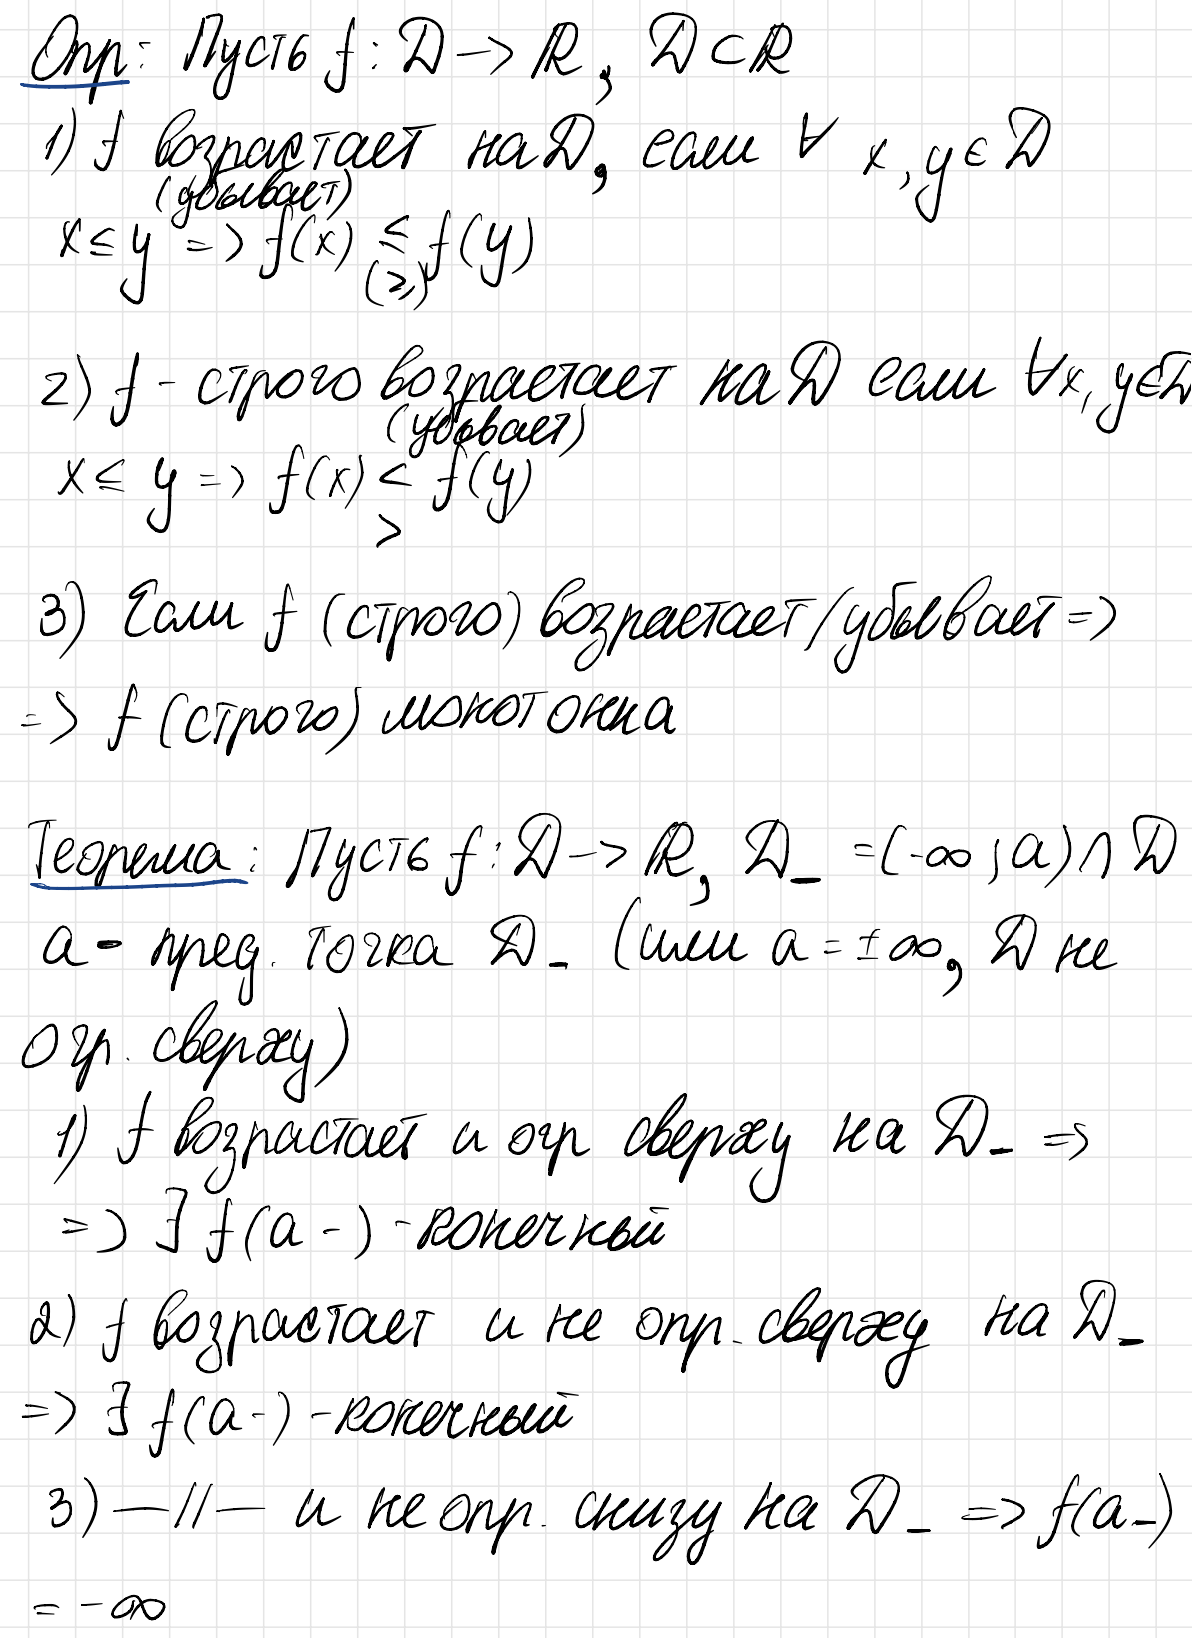 Опр: Пусть f : D -> ℝ, D ⊂ ℝ
1) f возрастает на D, если ∀ x, y ∈ D
(убывает)
x ≤ y => f(x) ≤ f(y)
(≥)
2) f - строго возрастает на D если ∀x, y ∈ D
(убывает)
x ≤ y => f(x) < f(y)
>
3) Если f (строго) возрастает/убывает =>
=> f (строго) монотонна
Теорема: Пусть f : D -> ℝ, D_ = (-∞; a) ∩ D
a - пред. точка D_ (или a = ±∞, D не
огр. сверху)
1) f возрастает и огр сверху на D_ =>
=> ∃ f(a -) - конечный
2) f возрастает и не опр. сверху на D_
=> ∃ f(a -) - конечный
3) —//— и не опр. снизу на D_ => f(a_)
= -∞